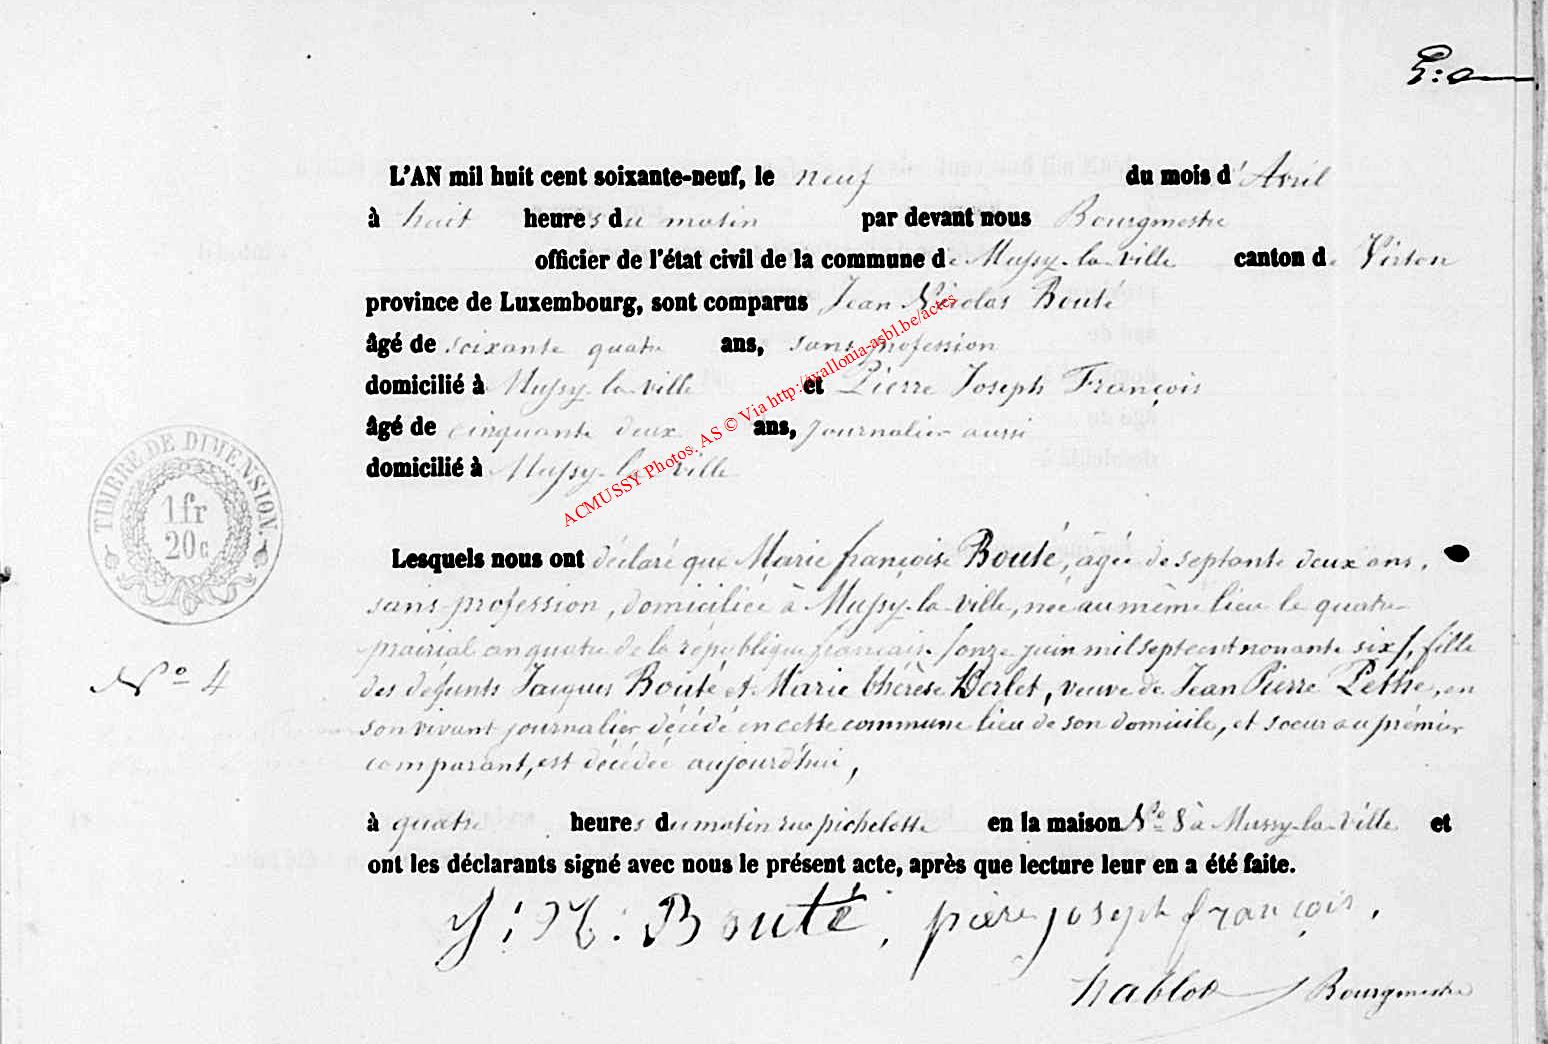 L'AN mil huit cent soixante-neuf, le neuf du mois d'Avril
à huit heures du matin par devant nous Bourgmestre
officier de l'état civil de la commune de Mussy-la-ville canton de Virton
province de Luxembourg, sont comparus Jean Nicolas Bouté
âgé de soixante quatre ans, sans profession
domicilié à Mussy-la-ville et Pierre Joseph François
âgé de cinquante deux ans, journalier aussi
domicilié à Mussy-la-ville
ACMUSSY Photos. AS © Via http://wallonia-asbl.be/actes
TIMBRE DE DIMENSION.
1 fr
20 c
Lesquels nous ont déclaré que Marie françoise Bouté, âgée de septante deux ans,
sans profession, domiciliée à Mussy-la-ville, née au même lieu le quatre
prairial an quatre de la république française (onze juin mil septcent nonante six), fille
des défunts Jacques Bouté et Marie thérèse Dorlet, veuve de Jean Pierre Pethe, en
son vivant journalier décédé en cette commune lieu de son domicile, et soeur au prémier
comparant, est décédée aujourd'hui,
N° 4
à quatre heures du matin rue pichelotte en la maison N° 8 à Mussy-la-Ville et
ont les déclarants signé avec nous le présent acte, après que lecture leur en a été faite.
J: N: Bouté, pierre joseph françois,
hablot Bourgmestre